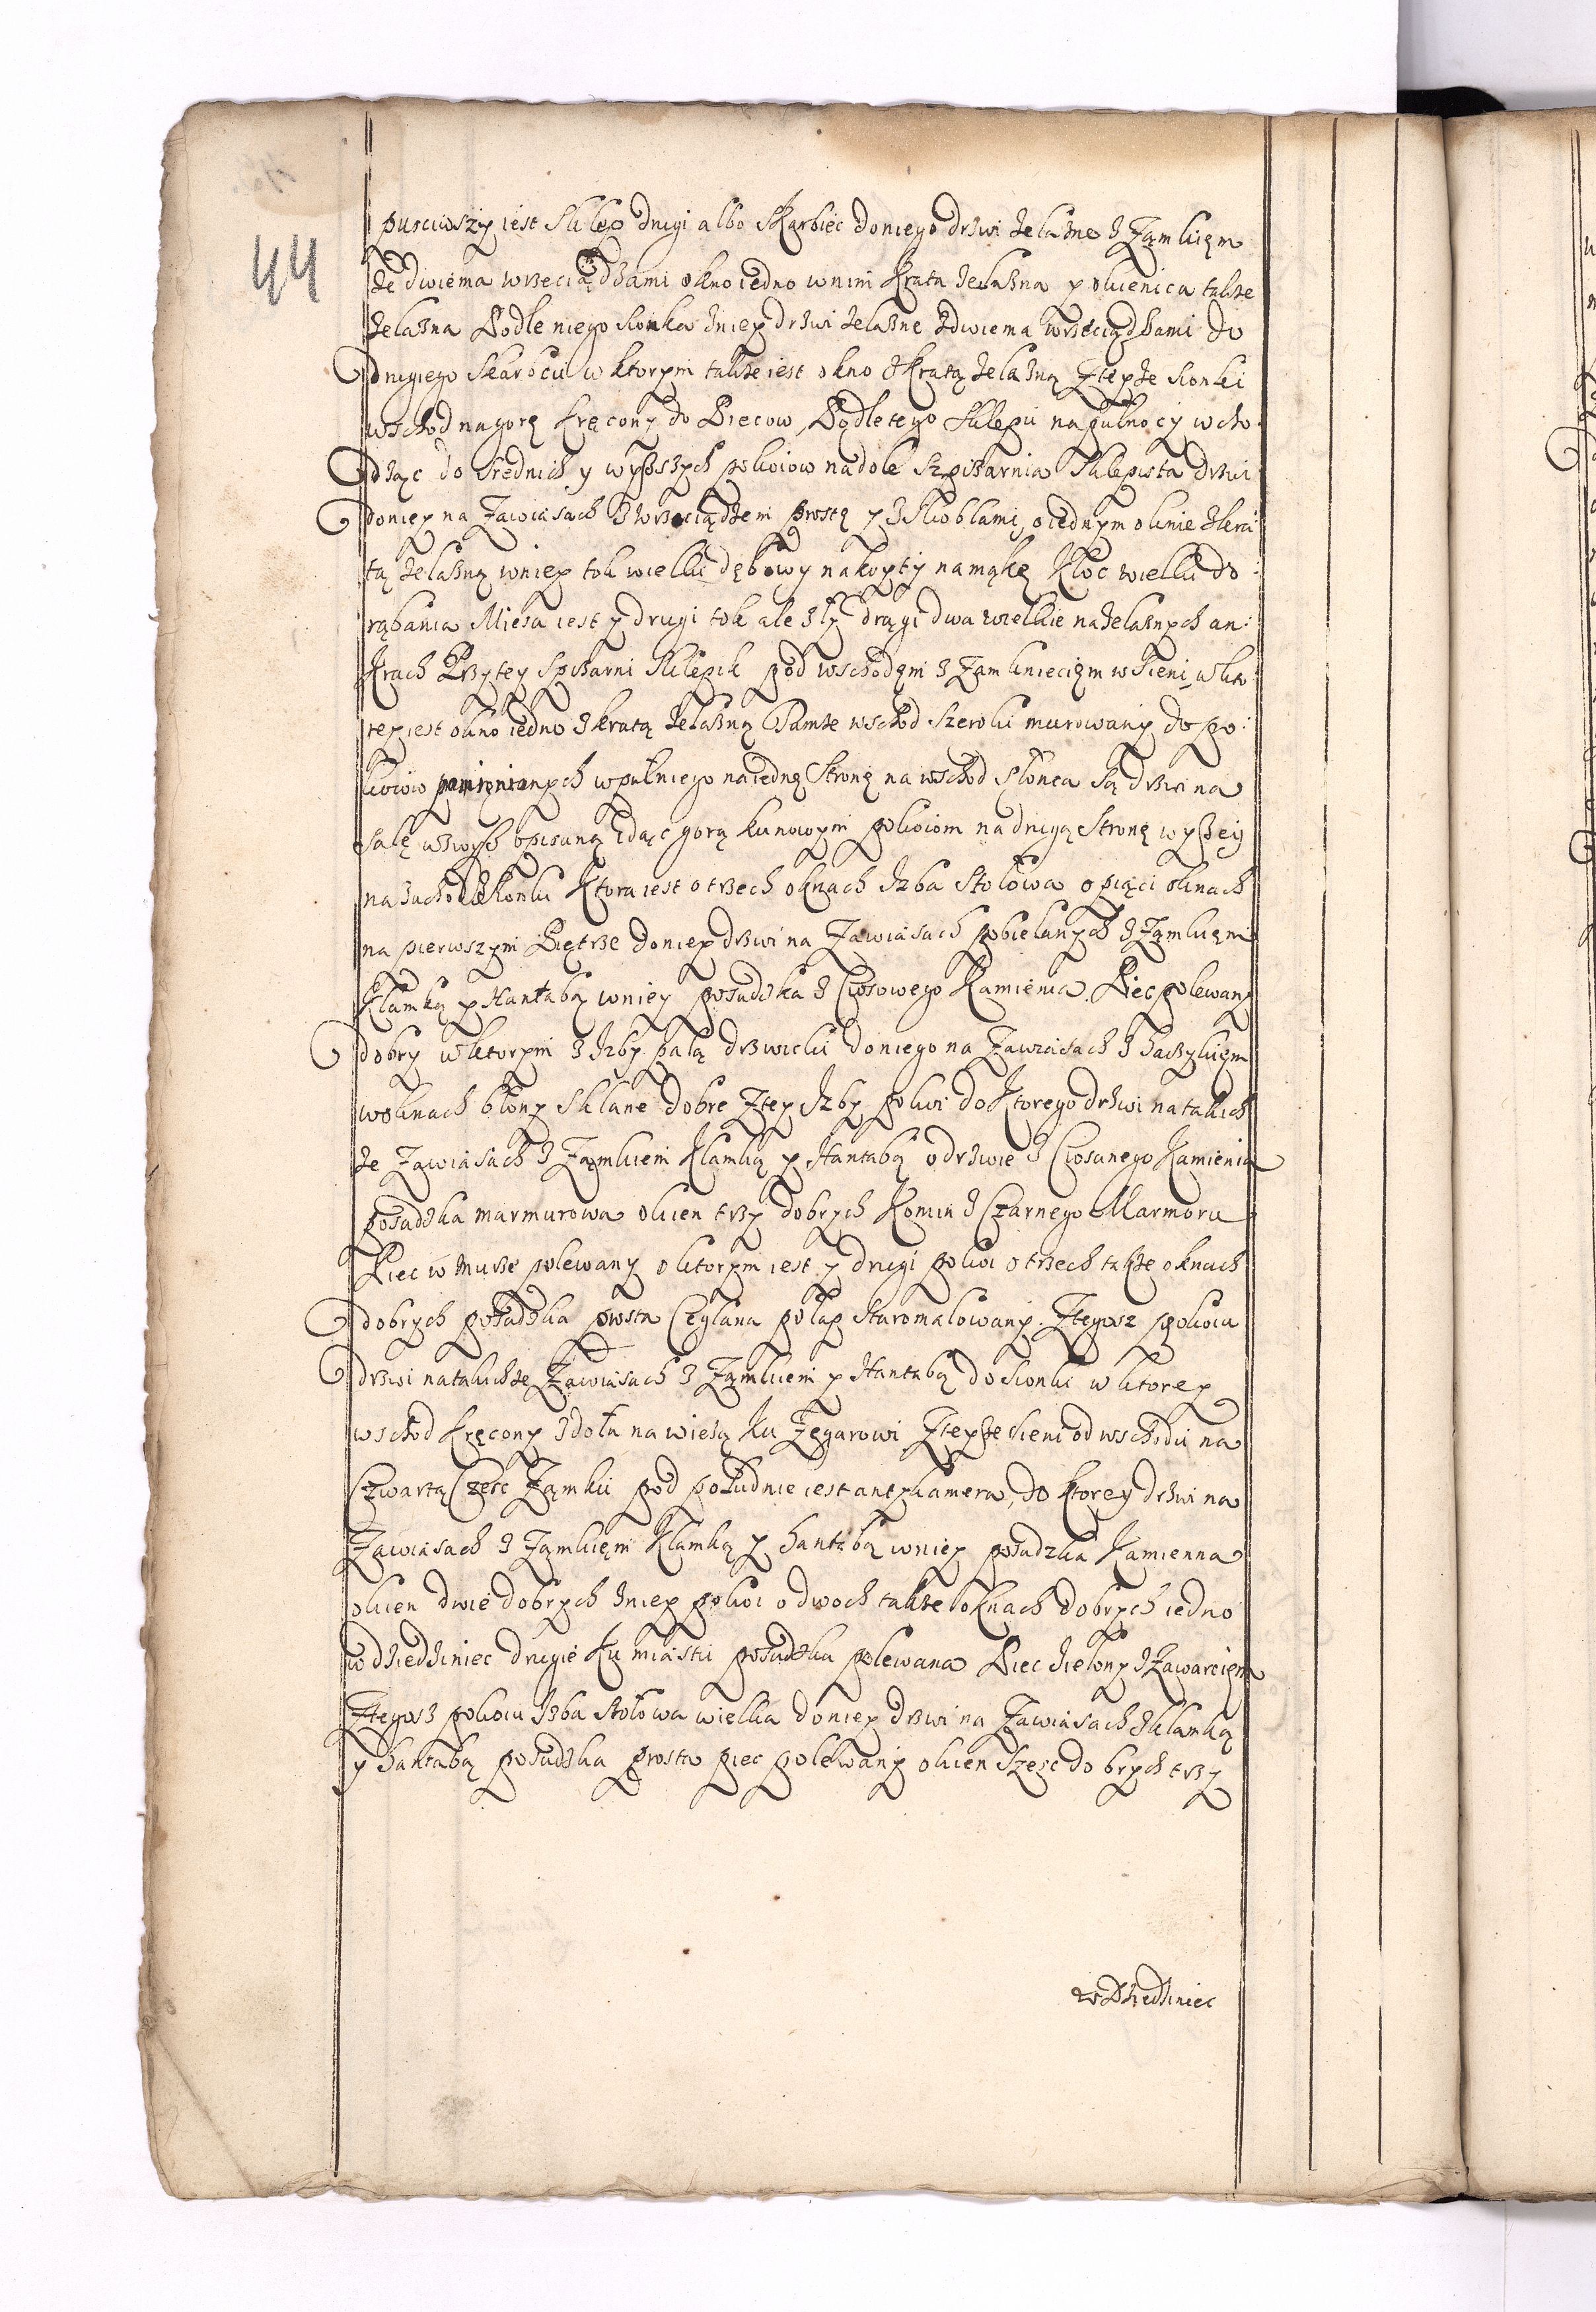 44
pusciwszy iest Sklep drugi albo Skarbiec doniego drzwi żelazne z Zamkięm
że dwiema wrzeciądzami okno iedno wnim Krata żelazna y okienica także
żelazna Podle niego Sionka zniey drzwi żelazne zdwiema wrzeciądzami do
drugiego Skarbcu w ktorym także iest okno z Kratą żelazną Zteyże Sionki
wschod nagorę kręcony do Piecow, Podle tego Sklepu napułnocy wcho-
dząc do średnich y wyższych pokoiow nadole Szpiżarnia Sklepista drzwi
doniey na Zawiasach z wrzeciądzem prostę y z Skoblami, o iednym oknie zkra
tą żelazną wniey tok wielki dębowy nakryty namąkę Kloc wielki do:
rąbania Miesa iest y drugi tok ale zły drągi dwa wielkie nażelaznych an:
krach Przytey Spiżarni Sklepik pod wschodęm z Zamknieciem w Sieni, w kto:
rey iest okno iedno z kratą żelazną Tamże wschod szeroki murowany do po:
koiow pomięnianych wpułniego naiednę Stronę na wschod słonca są drzwi na
salę wzwyż opisaną idąc gorą kunowym pokoiom na drugą Stronę wyższy
na zachod Sionki Ktora iest o trzech oknach Izba Stołowa o piąci oknach
na pierwszym Piętrze doniey drzwi na Zawiasach pobielanych z Zamkięm
Klamką y Hantabą wniey posadzka z Ciosowego Kamienia. Piec polewany
dobry w ktorym z Izby palą drzwiczki doniego na Zawiasach z haczykięm
woknach błony Sklane dobre Ztey Izby pokoi do Ktorego drzwi na takich
że Zawiasach z Zamkiem Klamką y Hantabą odrzwie z Ciosanego Kamienia
posadzka marmurowa okien trzy dobrych Komin z Czarnego Marmoru
Piec w murze polewany o ktorym iest y drugi pokoi o trzech także oknach
dobrych posadzka prosta Ceglana pułap Staromalowany. Ztegosz pokoiu
drzwi natakichże Zawiasach z Zamkiem y Hantabą do Sionki w ktorey
wschod kręcony zdołu na wieżą ku Zegarowi Zteyże Sieni od wschodu na
Czwartą Część Zamku pod południe iest antykamera, do ktorey drzwi na
Zawiasach z Zamkięm Klamką y hantabą wniey posadzka Kamienna
okien dwie dobrych zniey pokoi o dwoch także oknach dobrych iedno
w dziedziniec drugie ku miastu posadzka polewana Piec zielony z Zawarcięm
Ztegosz pokoiu Izba stołowa wielka doniey drzwi na Zawiasach z klamką
y hantabą posadzka prosta piec polewany okien sześc dobrych trzy
w Dziedziniec